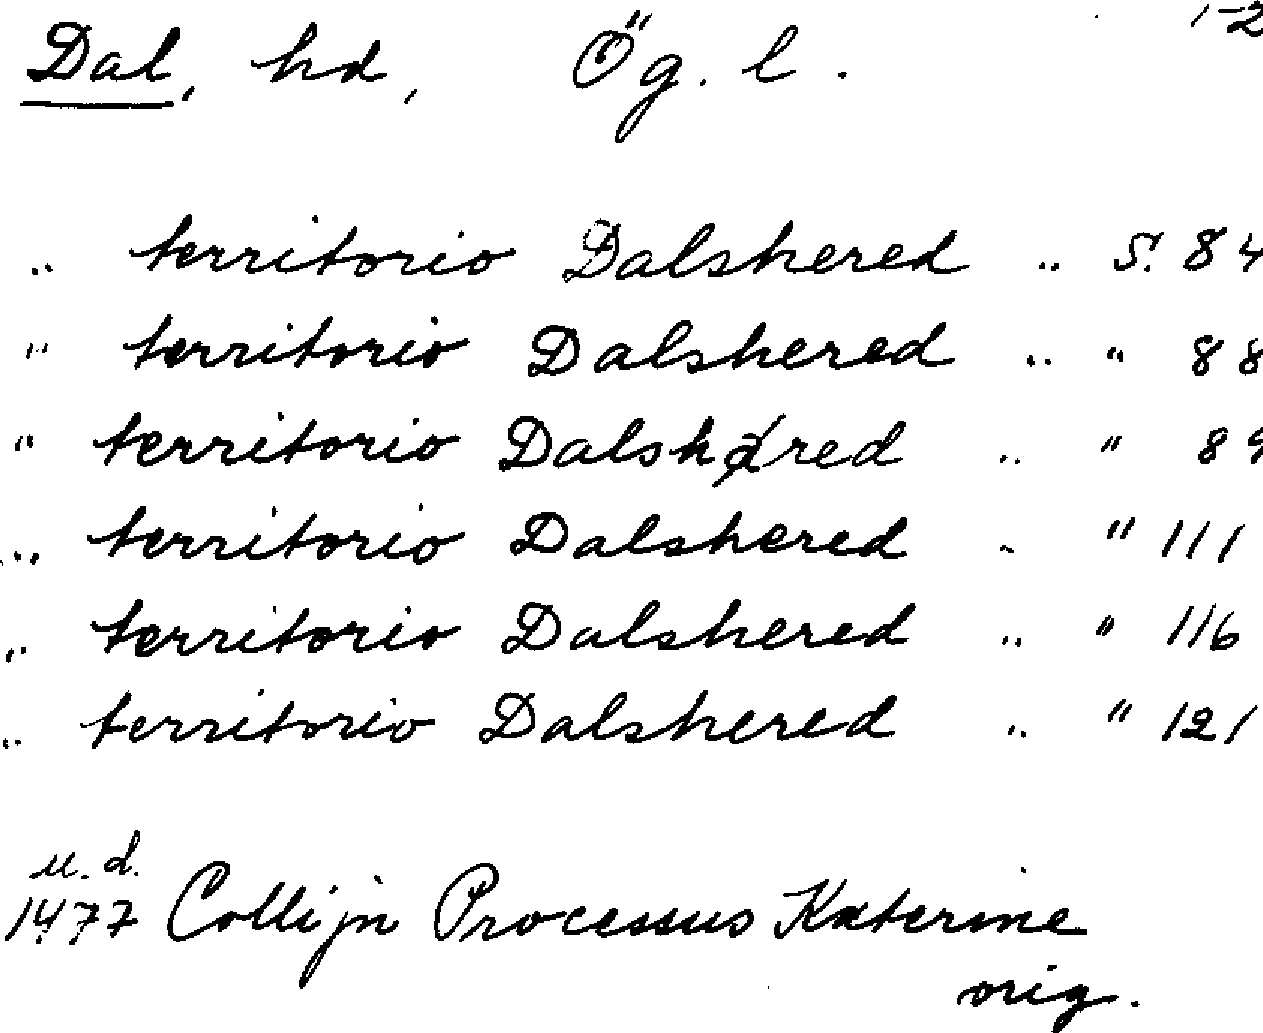 1-2
Dal, hd, Ög. l.
.. territorio Dalshered .. S. 84
" territorio Dalshered .. " 88
" territorio Dalshøred .. " 89
... territorio Dalshered .. " 111
.. territorio Dalshered .. " 116
.. territorio Dalshered .. " 121
u. d.
1477 Collijn Processus Katerine
orig.